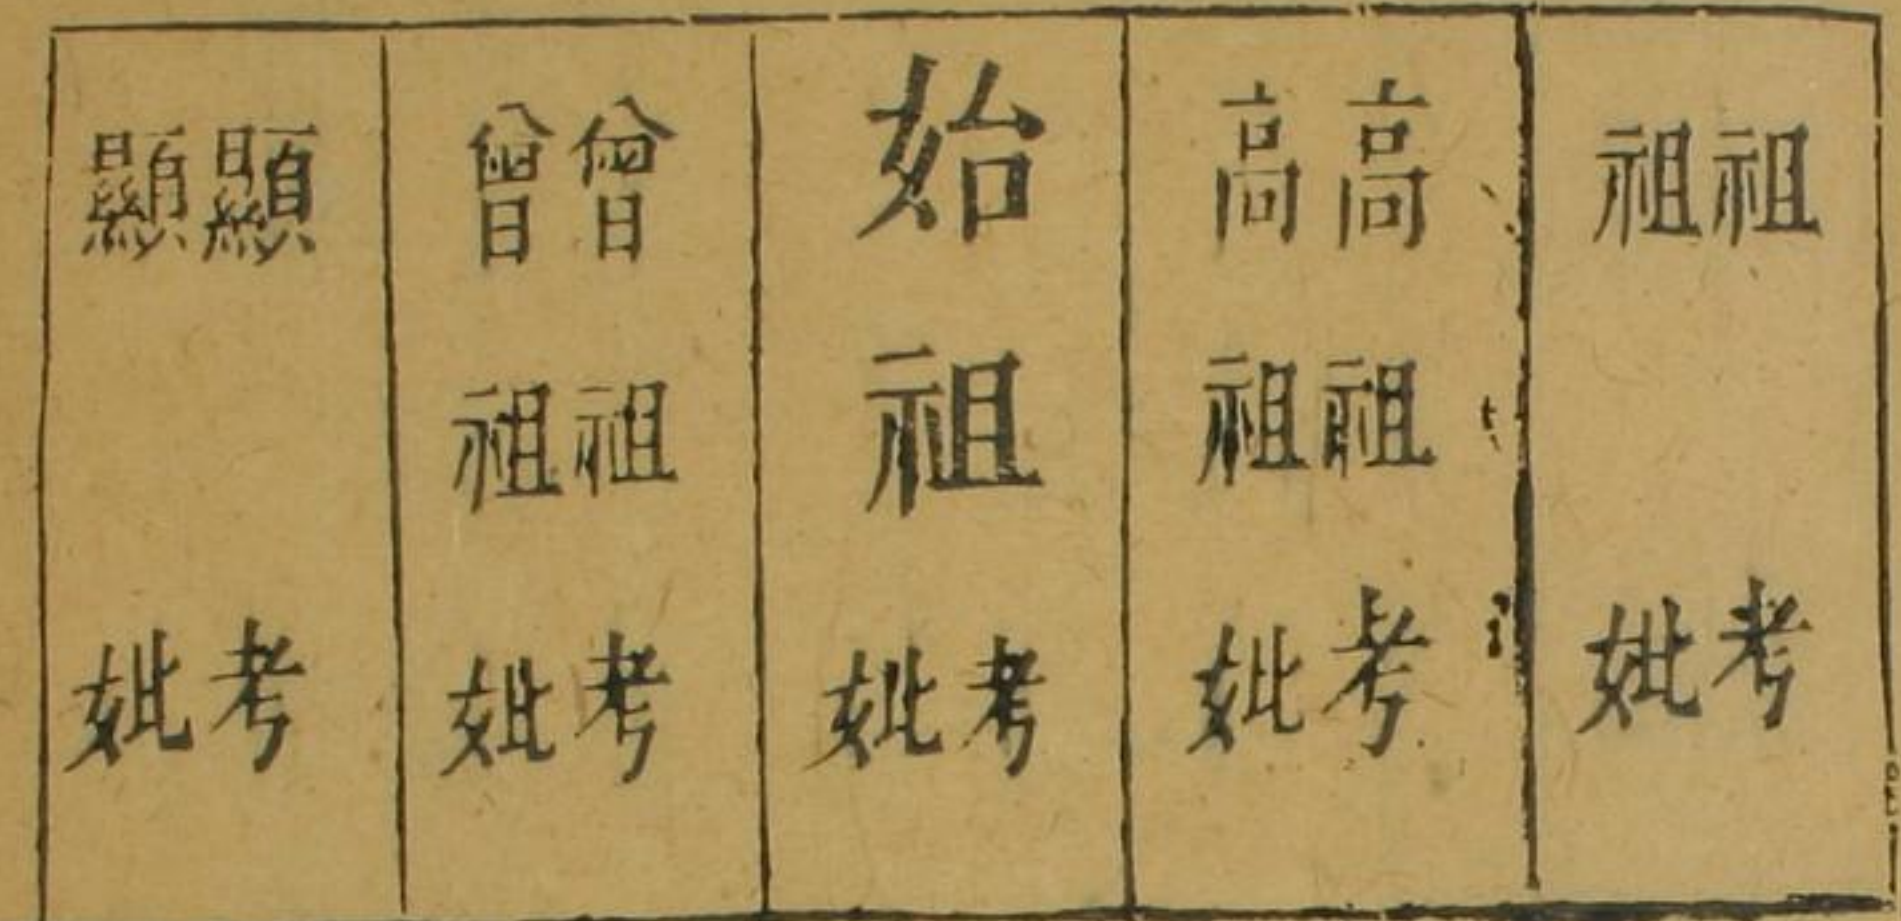 祖考
祖妣
高祖考
高祖妣
始祖考妣
曾祖考
曾祖妣
顯考
顯妣